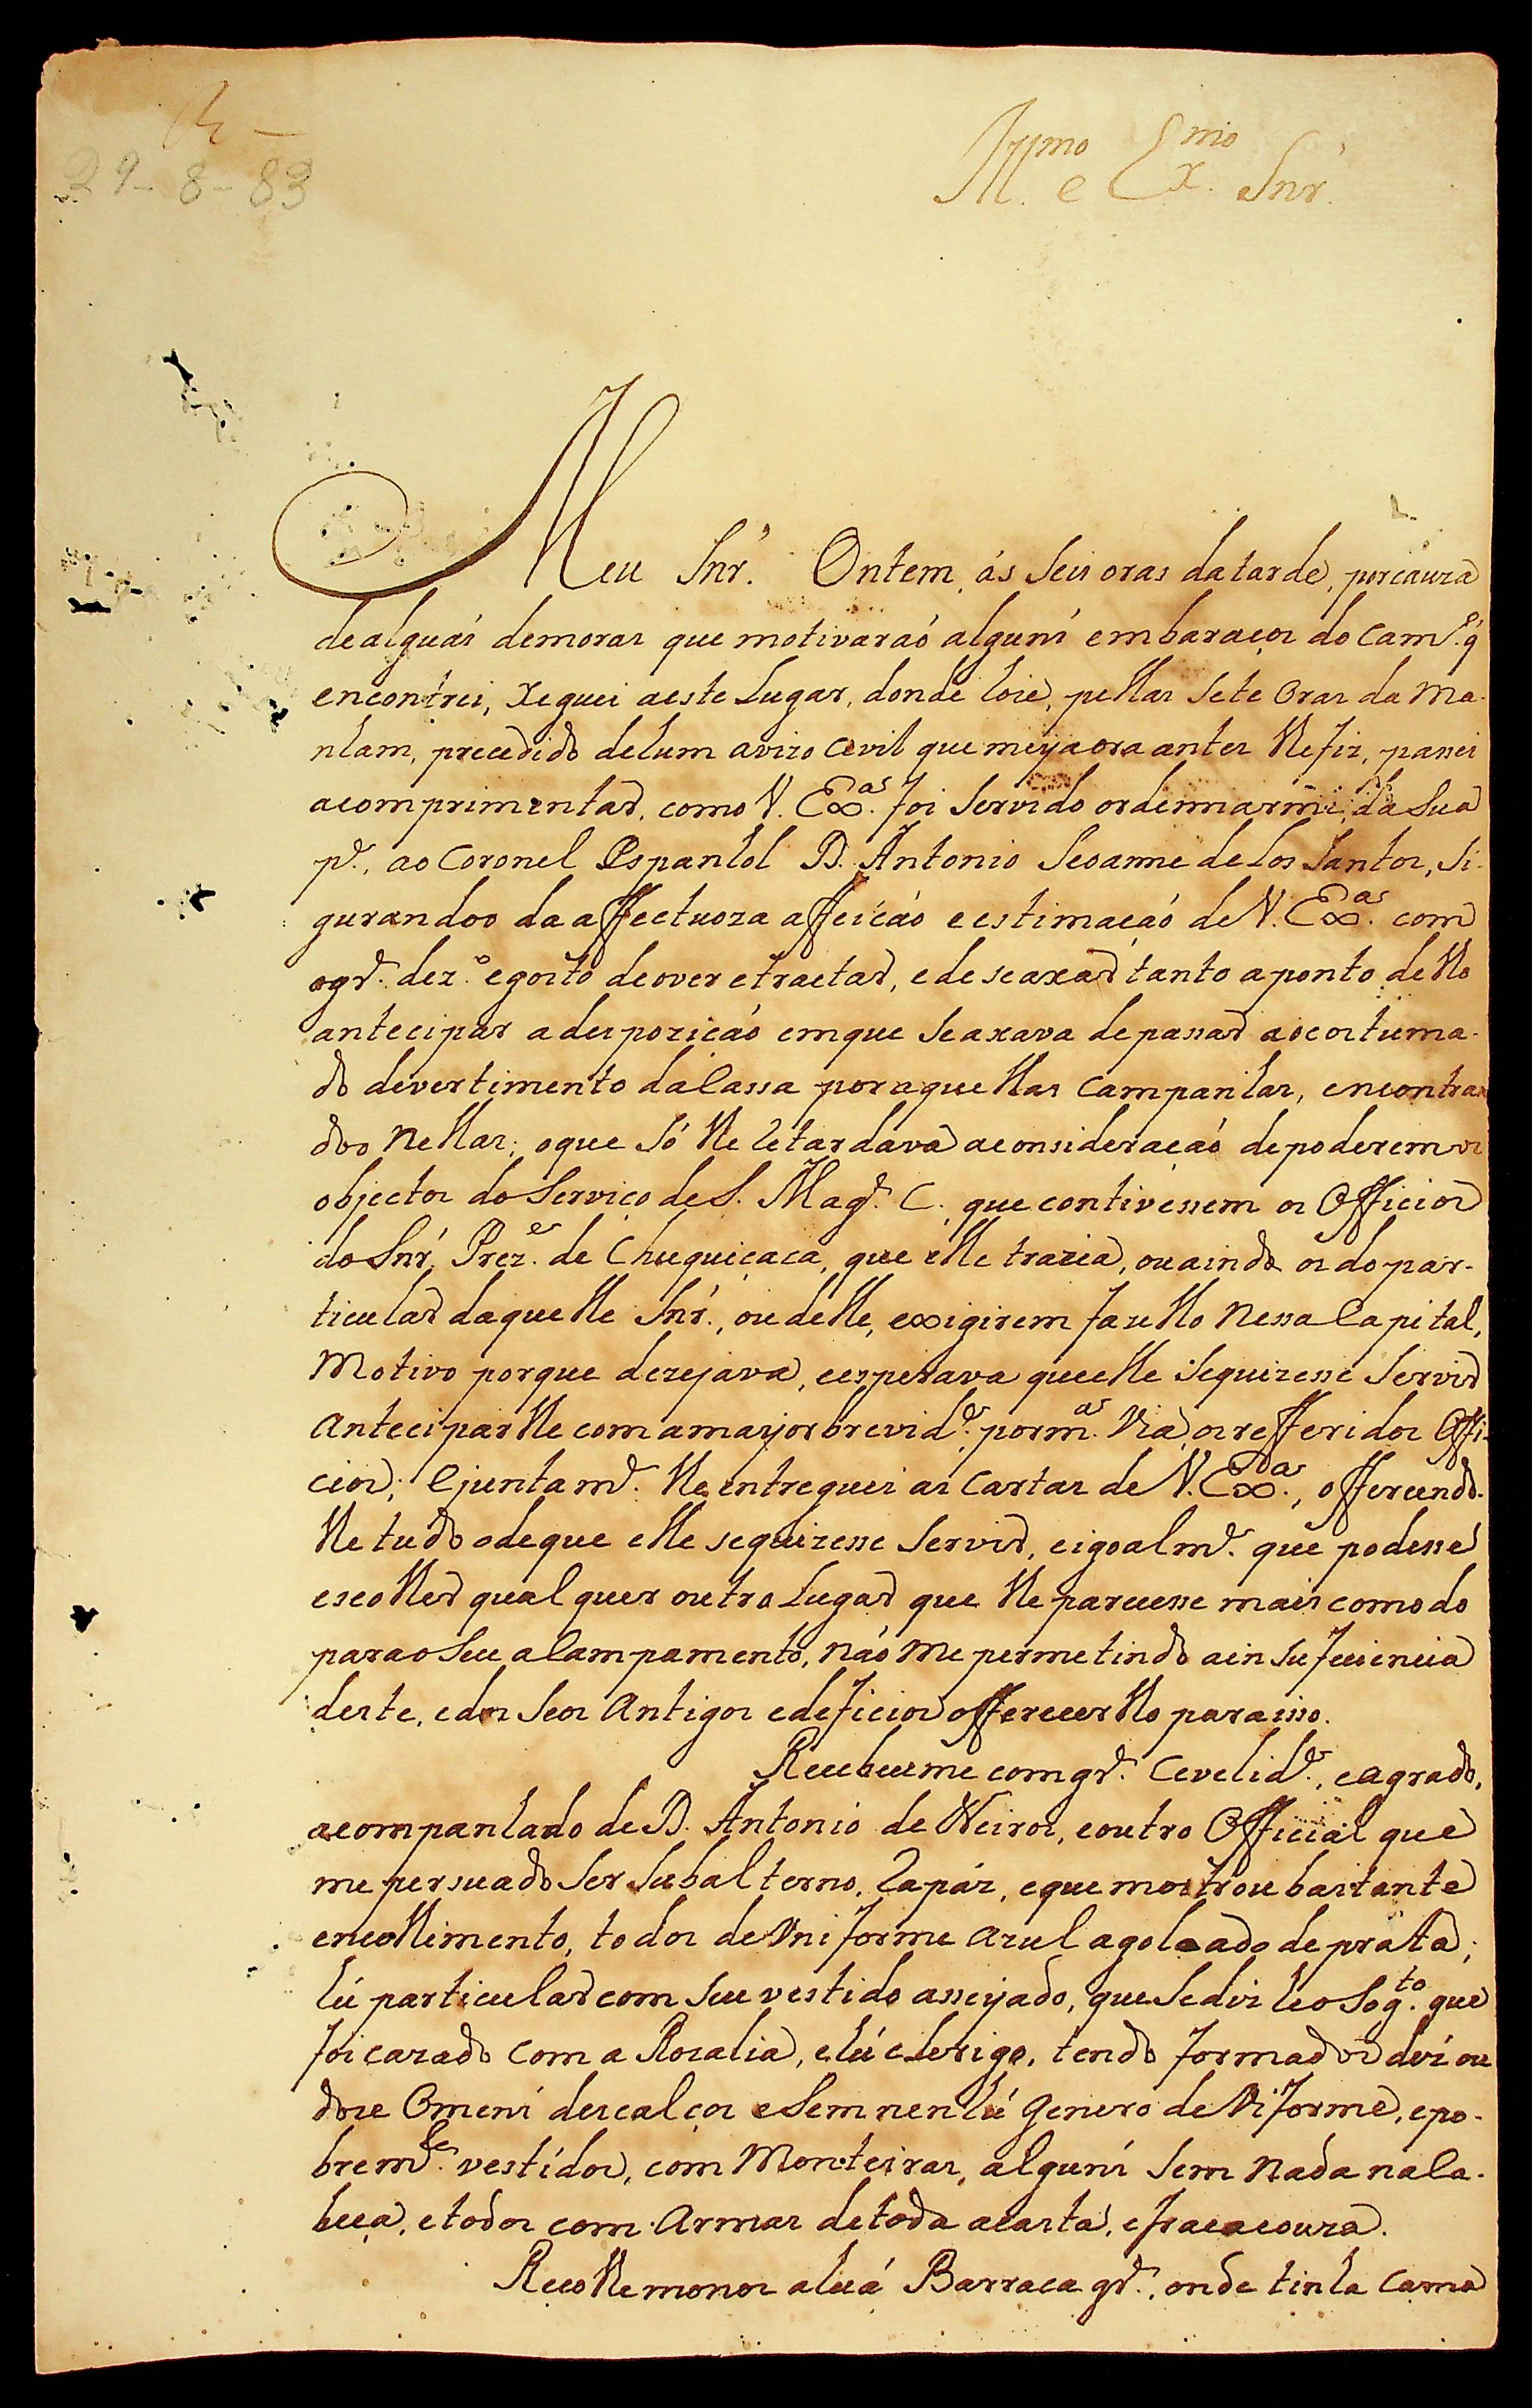 29-8-83
Ill.mo e Ex.mo Snr.
Meu Snr. Ontem, ás seis oras da tarde, por cauza
de alguás demoras que motivaraó alguns embaraços do cam.º q̃
encontrei, xeguei a este Lugar, donde hoie, pellas sete oras da ma-
nham, precedido de hum avizo cevil que meya ora antes lhe fiz, passei
a comprimentar, como V. Ex.ª foi servido ordennarme, da sua
p.e, ao Coronel Espanhol D. Antonio Seoanne de los Santos, si-
gurandoo da affectuoza affeićáo e estimaçaó de V. Ex.ª com
o gr.de dez.º e gosto de o ver e tractar, e de se axar tanto a ponto de lho
antecipar a despoziçáo em que se axava de passar ao costuma-
do devertimento da Cassa por aquellas campanhas, encontran
doo nellas; o que só lhe retardava a consideraçaó de poderem os
objectos do serviço de S. Mag.e C. que contivessem os officios
do Snr. Prez.e de Chuquiçaca, que elle trazia, ou ainda os do par-
ticular daquelle Snr., ou delle, exigirem fazello nessa Capital,
motivo porque dezejava, e esperava que elle se quizesse servir
anteciparlhe com a mayor brevid.e, por m.ª via, os refferidos offi-
cios; e juntam.e lhe entreguei as cartas de V. Ex.ª, offerecendo-
lhe tudo o de que elle se quizesse servir, e igoalm.e que podesse
escolher qualquer outro Lugar que lhe parecesse mais comodo
para o seu aCampamento, náo me permetindo a insufeciencia
deste, e dos seos antigos edeficios offerecerlho para isso.
Recebeume com gr.de cevelid.e, e agrado,
acompanhado de D. Antonio de Neiros, e outro Official que
me persuado ser subalterno, Rapáz, e que mostrou bastante
encolhimento, todos de Uniforme azul agoloado de prata;
hú particular com seu vestido asseyado, que se diz he o Sog.to que
foi cazado com a Rozalia, e hú clerigo, tendo formados déz ou
doze omens descalços e sem nenhú genero de Uniforme, e po-
brem.te vestidos, com Monteiras, alguns sem nada na Ca-
beça, e todos com armas de toda a casta, e fraca couza.
Recolhemonos a huá Barraca gr.de, onde tinha cama